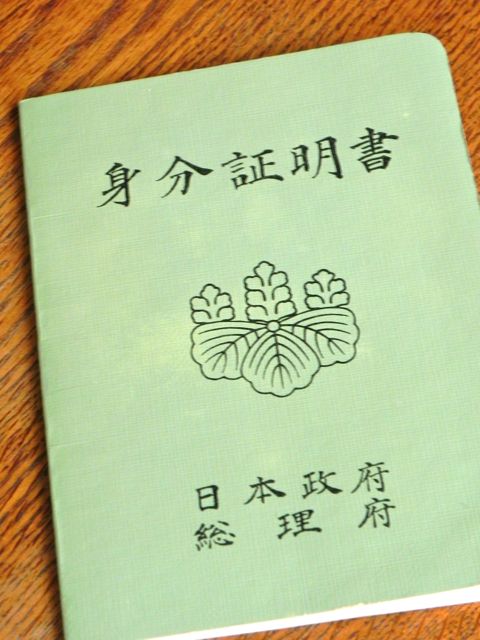 身分証明書
日本政府
総理府